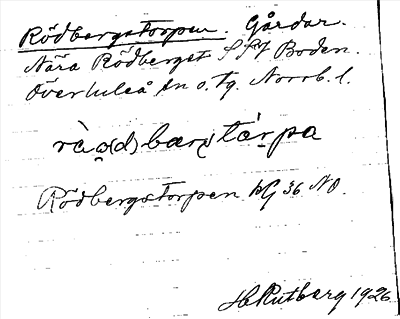 Rödbergstorpen. Gårdar.
Nära Rödberget SSV Boden.
Överluleå sn o. tg. Norrb. l.
Rödbergstorpen hG 36 NO.
H. Rutberg 1926